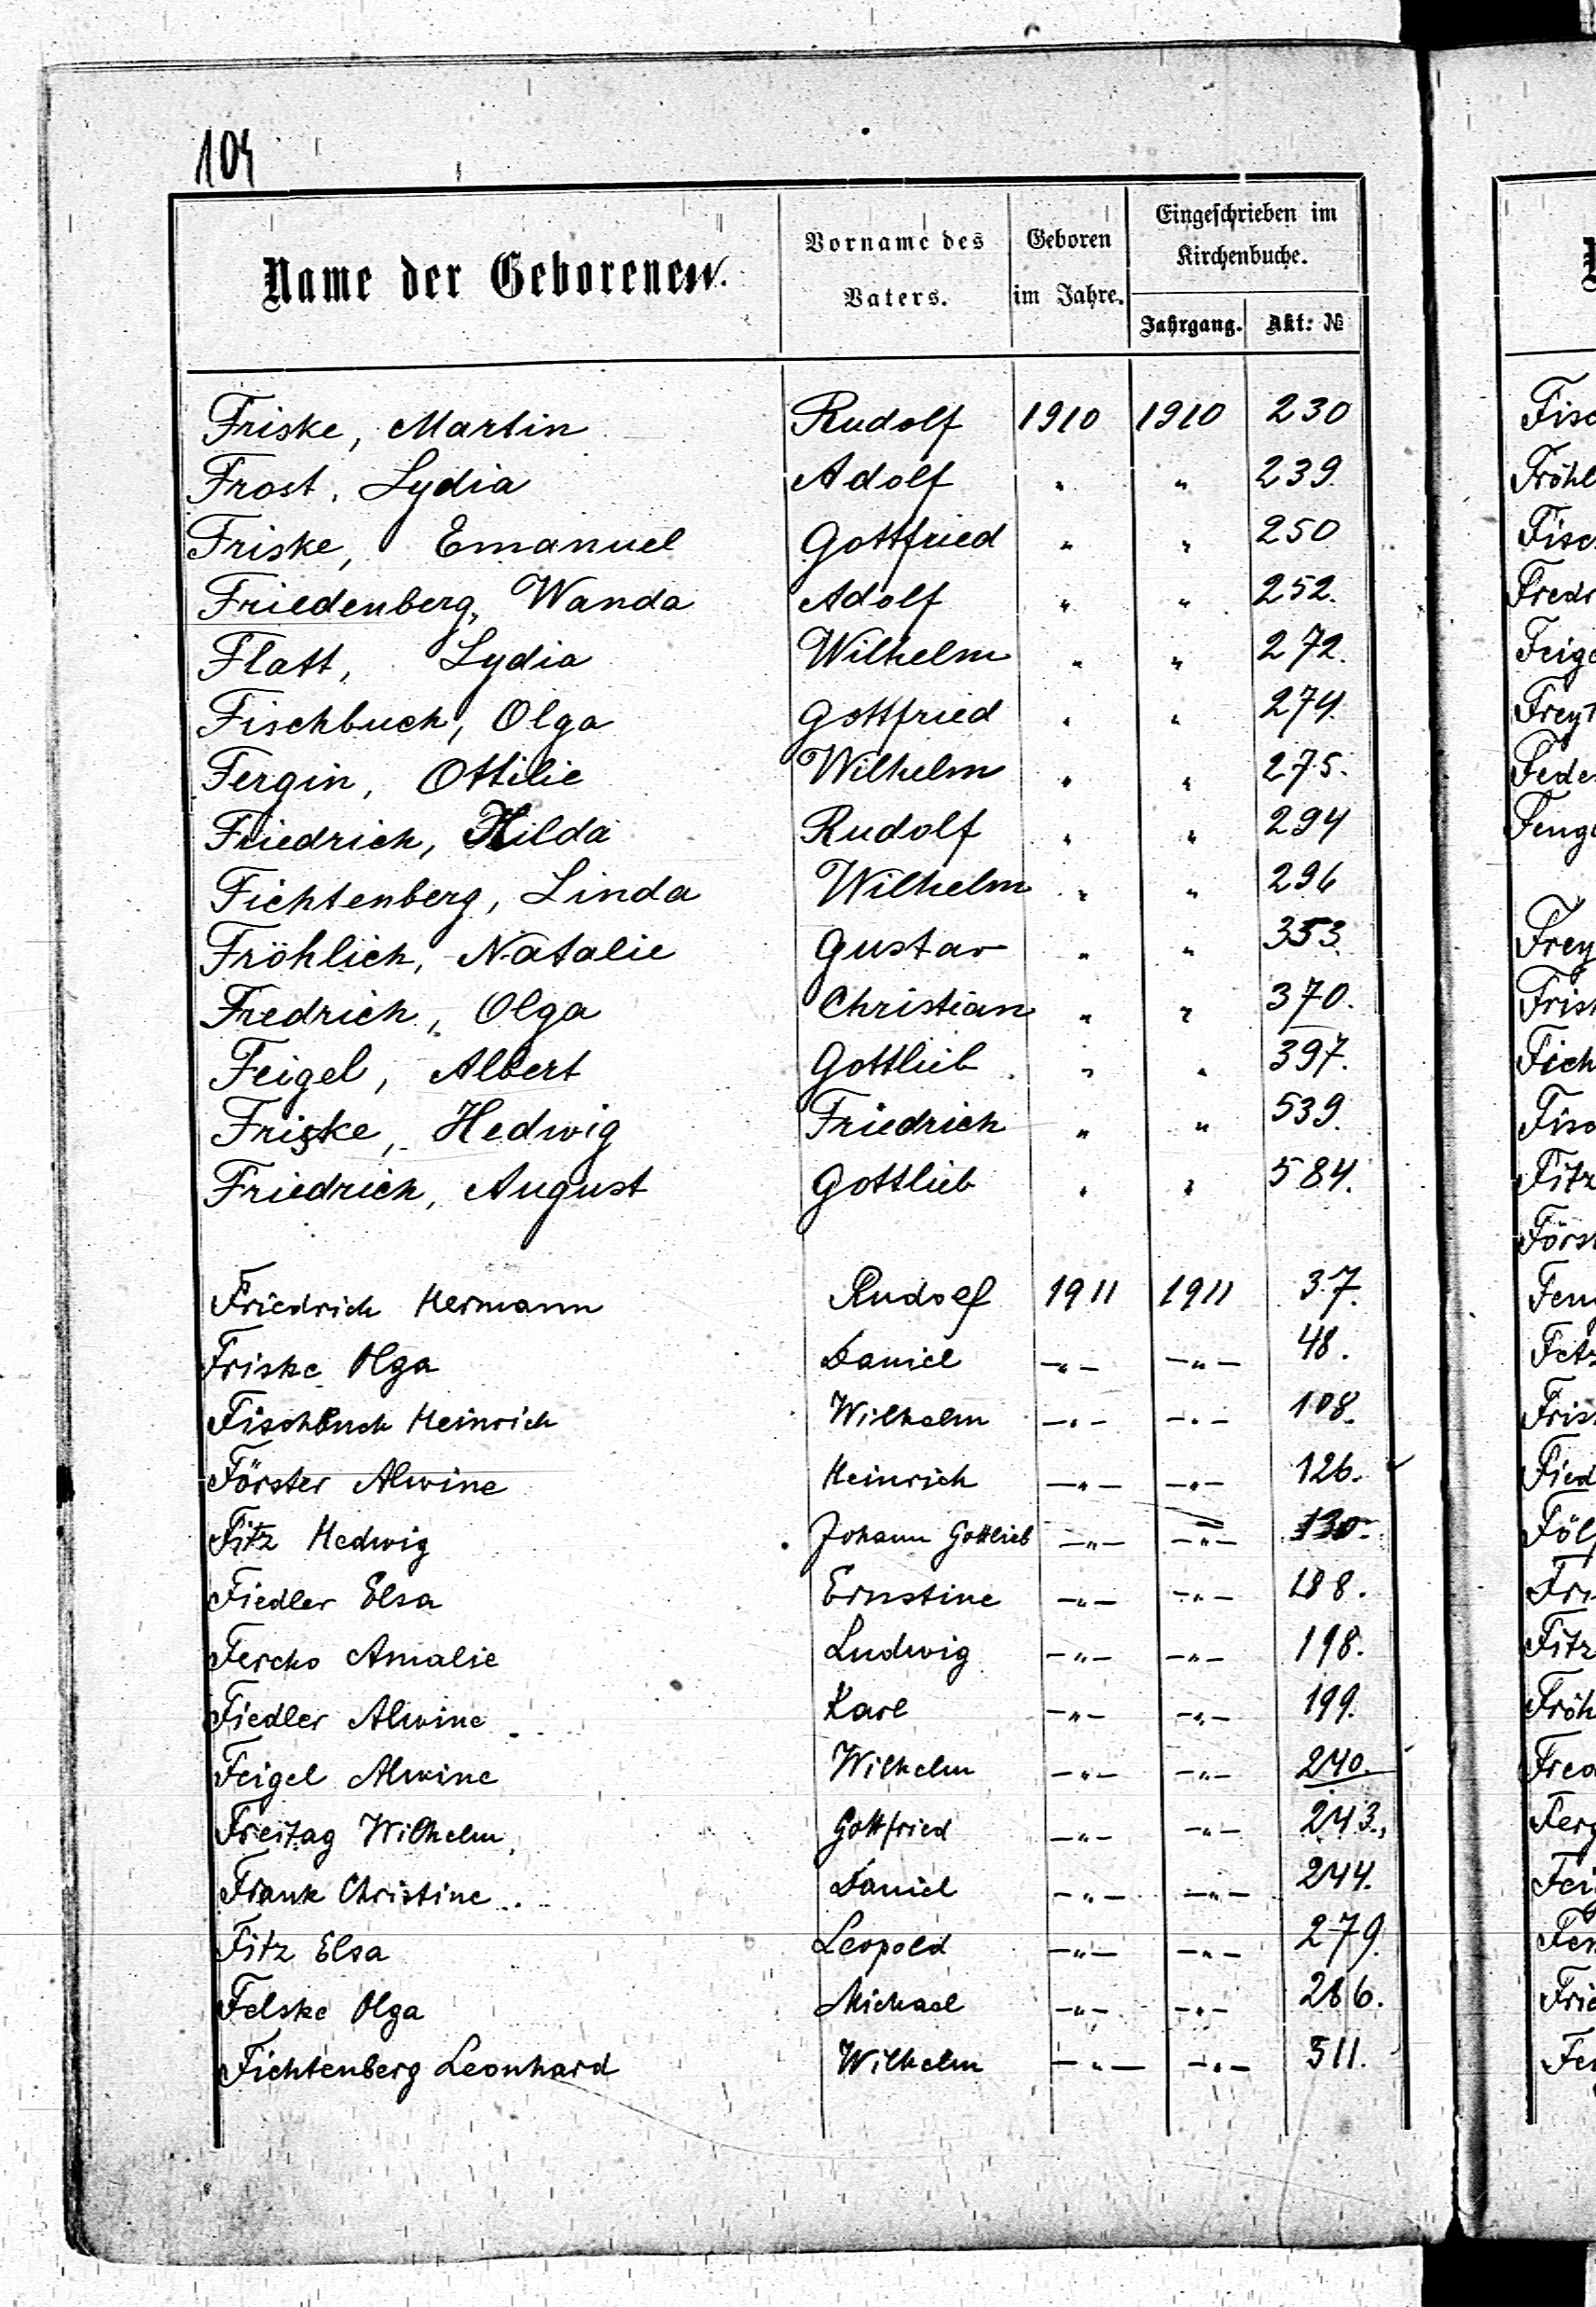 104
Name der Geborenen.
Vorname des Vaters.
Geboren im Jahre.
Eingeschrieben im Kirchenbuche.
Jahrgang. Akt: №
Friske, Martin Rudolf 1910 1910 230
Frost, Lydia Adolf " " 239.
Friske, Emanuel Gottfried " " 250
Friedenberg, Wanda Adolf " " 252.
Flatt, Lydia Wilhelm " " 272.
Fischbuch, Olga Gottfried " " 274.
Fergin, Ottilie Wilhelm " " 275.
Friedrich, Hilda Rudolf " " 294
Fichtenberg, Linda Wilhelm " " 296
Fröhlich, Natalie Gustav " " 353.
Fredrich, Olga Christian " " 370.
Feigel, Albert Gottlieb " " 397.
Friske, Hedwig Friedrich " " 539.
Friedrich, August Gottlieb " " 584.
Friedrich Hermann Rudolf 1911 1911 37.
Friske Olga Daniel —"— —"— 48.
Fischbuch Heinrich Wilhelm —"— —"— 108.
Förster Alwine Heinrich —"— —"— 126.
Fitz Hedwig Johann Gottlieb —"— —"— 130.
Fiedler Elsa Ernstine —"— —"— 188.
Fercho Amalie Ludwig —"— —"— 198.
Fiedler Alwine Karl —"— —"— 199.
Feigel Alwine Wilhelm —"— —"— 240.
Freitag Wilhelm Gottfried —"— —"— 243.
Frank Christine Daniel —"— —"— 244.
Fitz Elsa Leopold —"— —"— 279.
Felske Olga Michael —"— —"— 286.
Fichtenberg Leonhard Wilhelm —"— —"— 311.